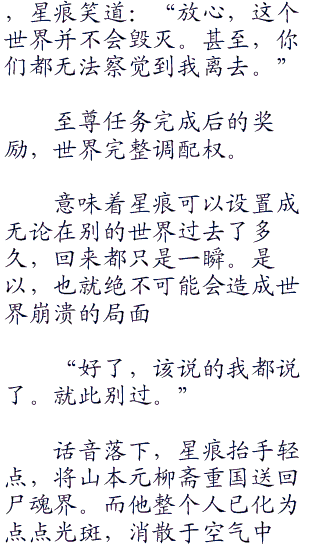 ，星痕笑道：“放心，这个
世界并不会毁灭。甚至，你
们都无法察觉到我离去。”
至尊任务完成后的奖
励，世界完整调配权。
意味着星痕可以设置成
无论在别的世界过去了多
久，回来都只是一瞬。是
以，也就绝不可能会造成世
界崩溃的局面
“好了，该说的我都说
了。就此别过。”
话音落下，星痕抬手轻
点，将山本元柳斋重国送回
尸魂界。而他整个人已化为
点点光斑，消散于空气中